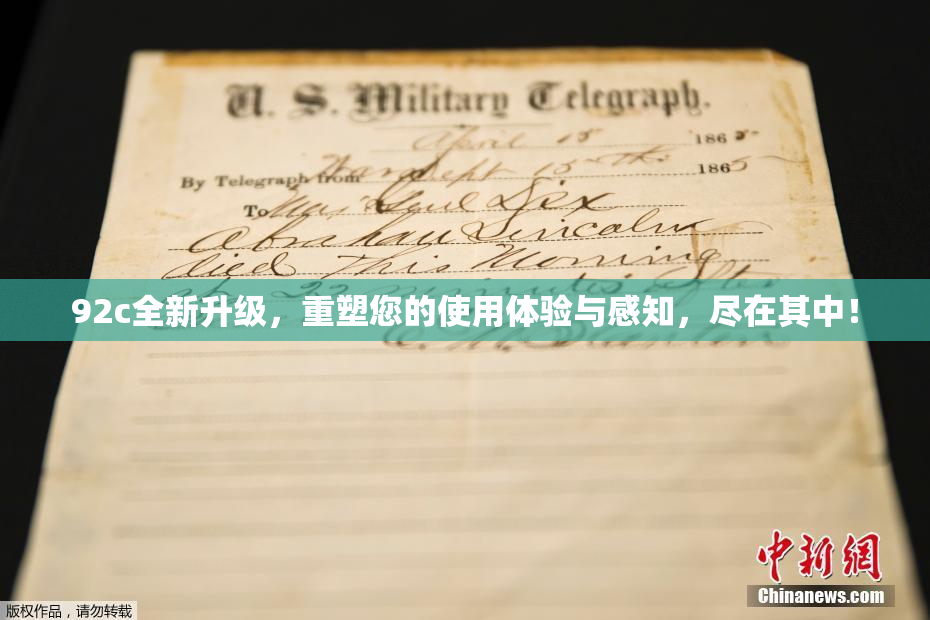 U. S. Military Telegraph.
April 15 1865
By Telegraph from War Dept 15th 1865
To Maj Genl Dix
Abraham Lincoln
died This Morning
at 22 minutes after
92c全新升级，重塑您的使用体验与感知，尽在其中！
E. M. Stanton
中新网
Chinanews.com
版权作品，请勿转载